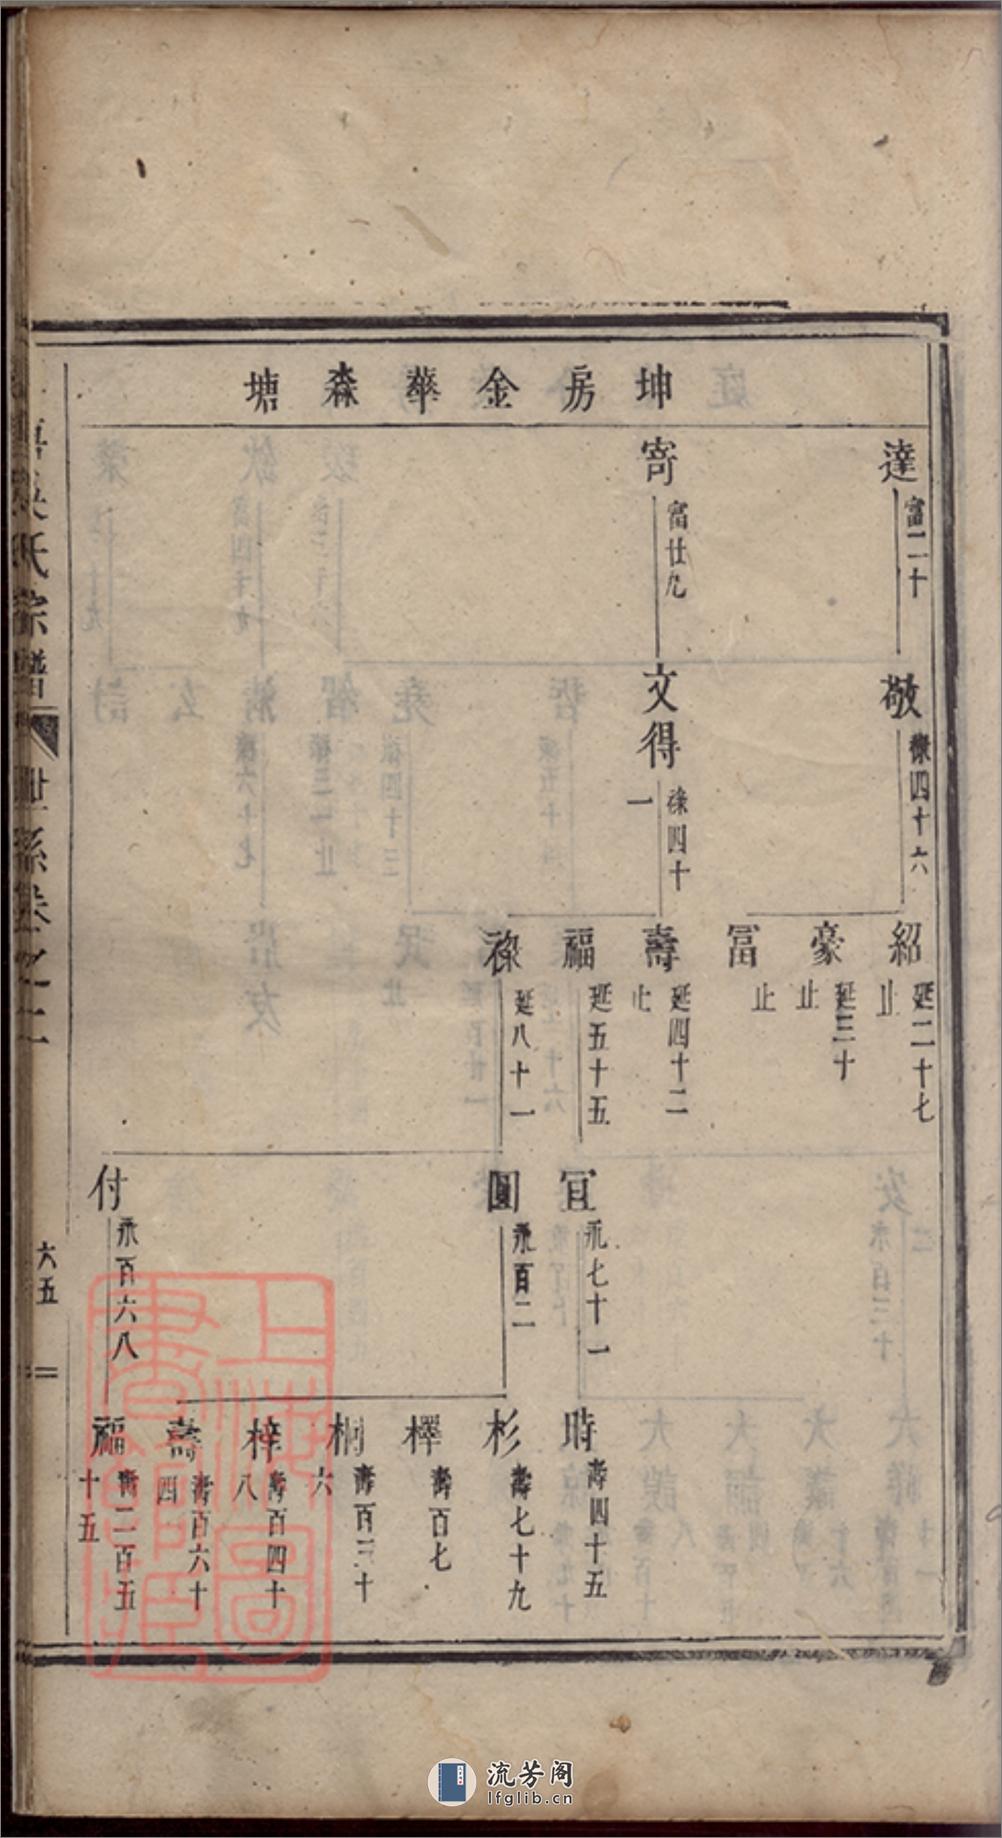 坤房金華森塘
達
富二十
寄
富廿九
敬
祿四十六
文得
祿四十一
紹
延二十七止
豪
延三十止
冨
止
壽
延四十二止
福
延五十五
祿
延八十一
冝
永七十一
圓
永百二
付
永百六八
時
壽四十五
杉
壽七十九
樿
壽百七
桐
壽百三十六
梓
壽百四十八
壽
壽百六十四
福
壽二百五十五
氏宗譜
世系卷之二
六五
上海圖書館藏
流芳阁
lfglib.cn